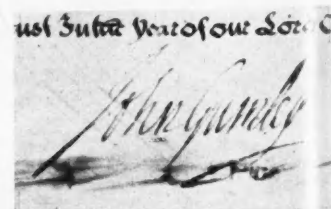 year of our Lord
John Gumley